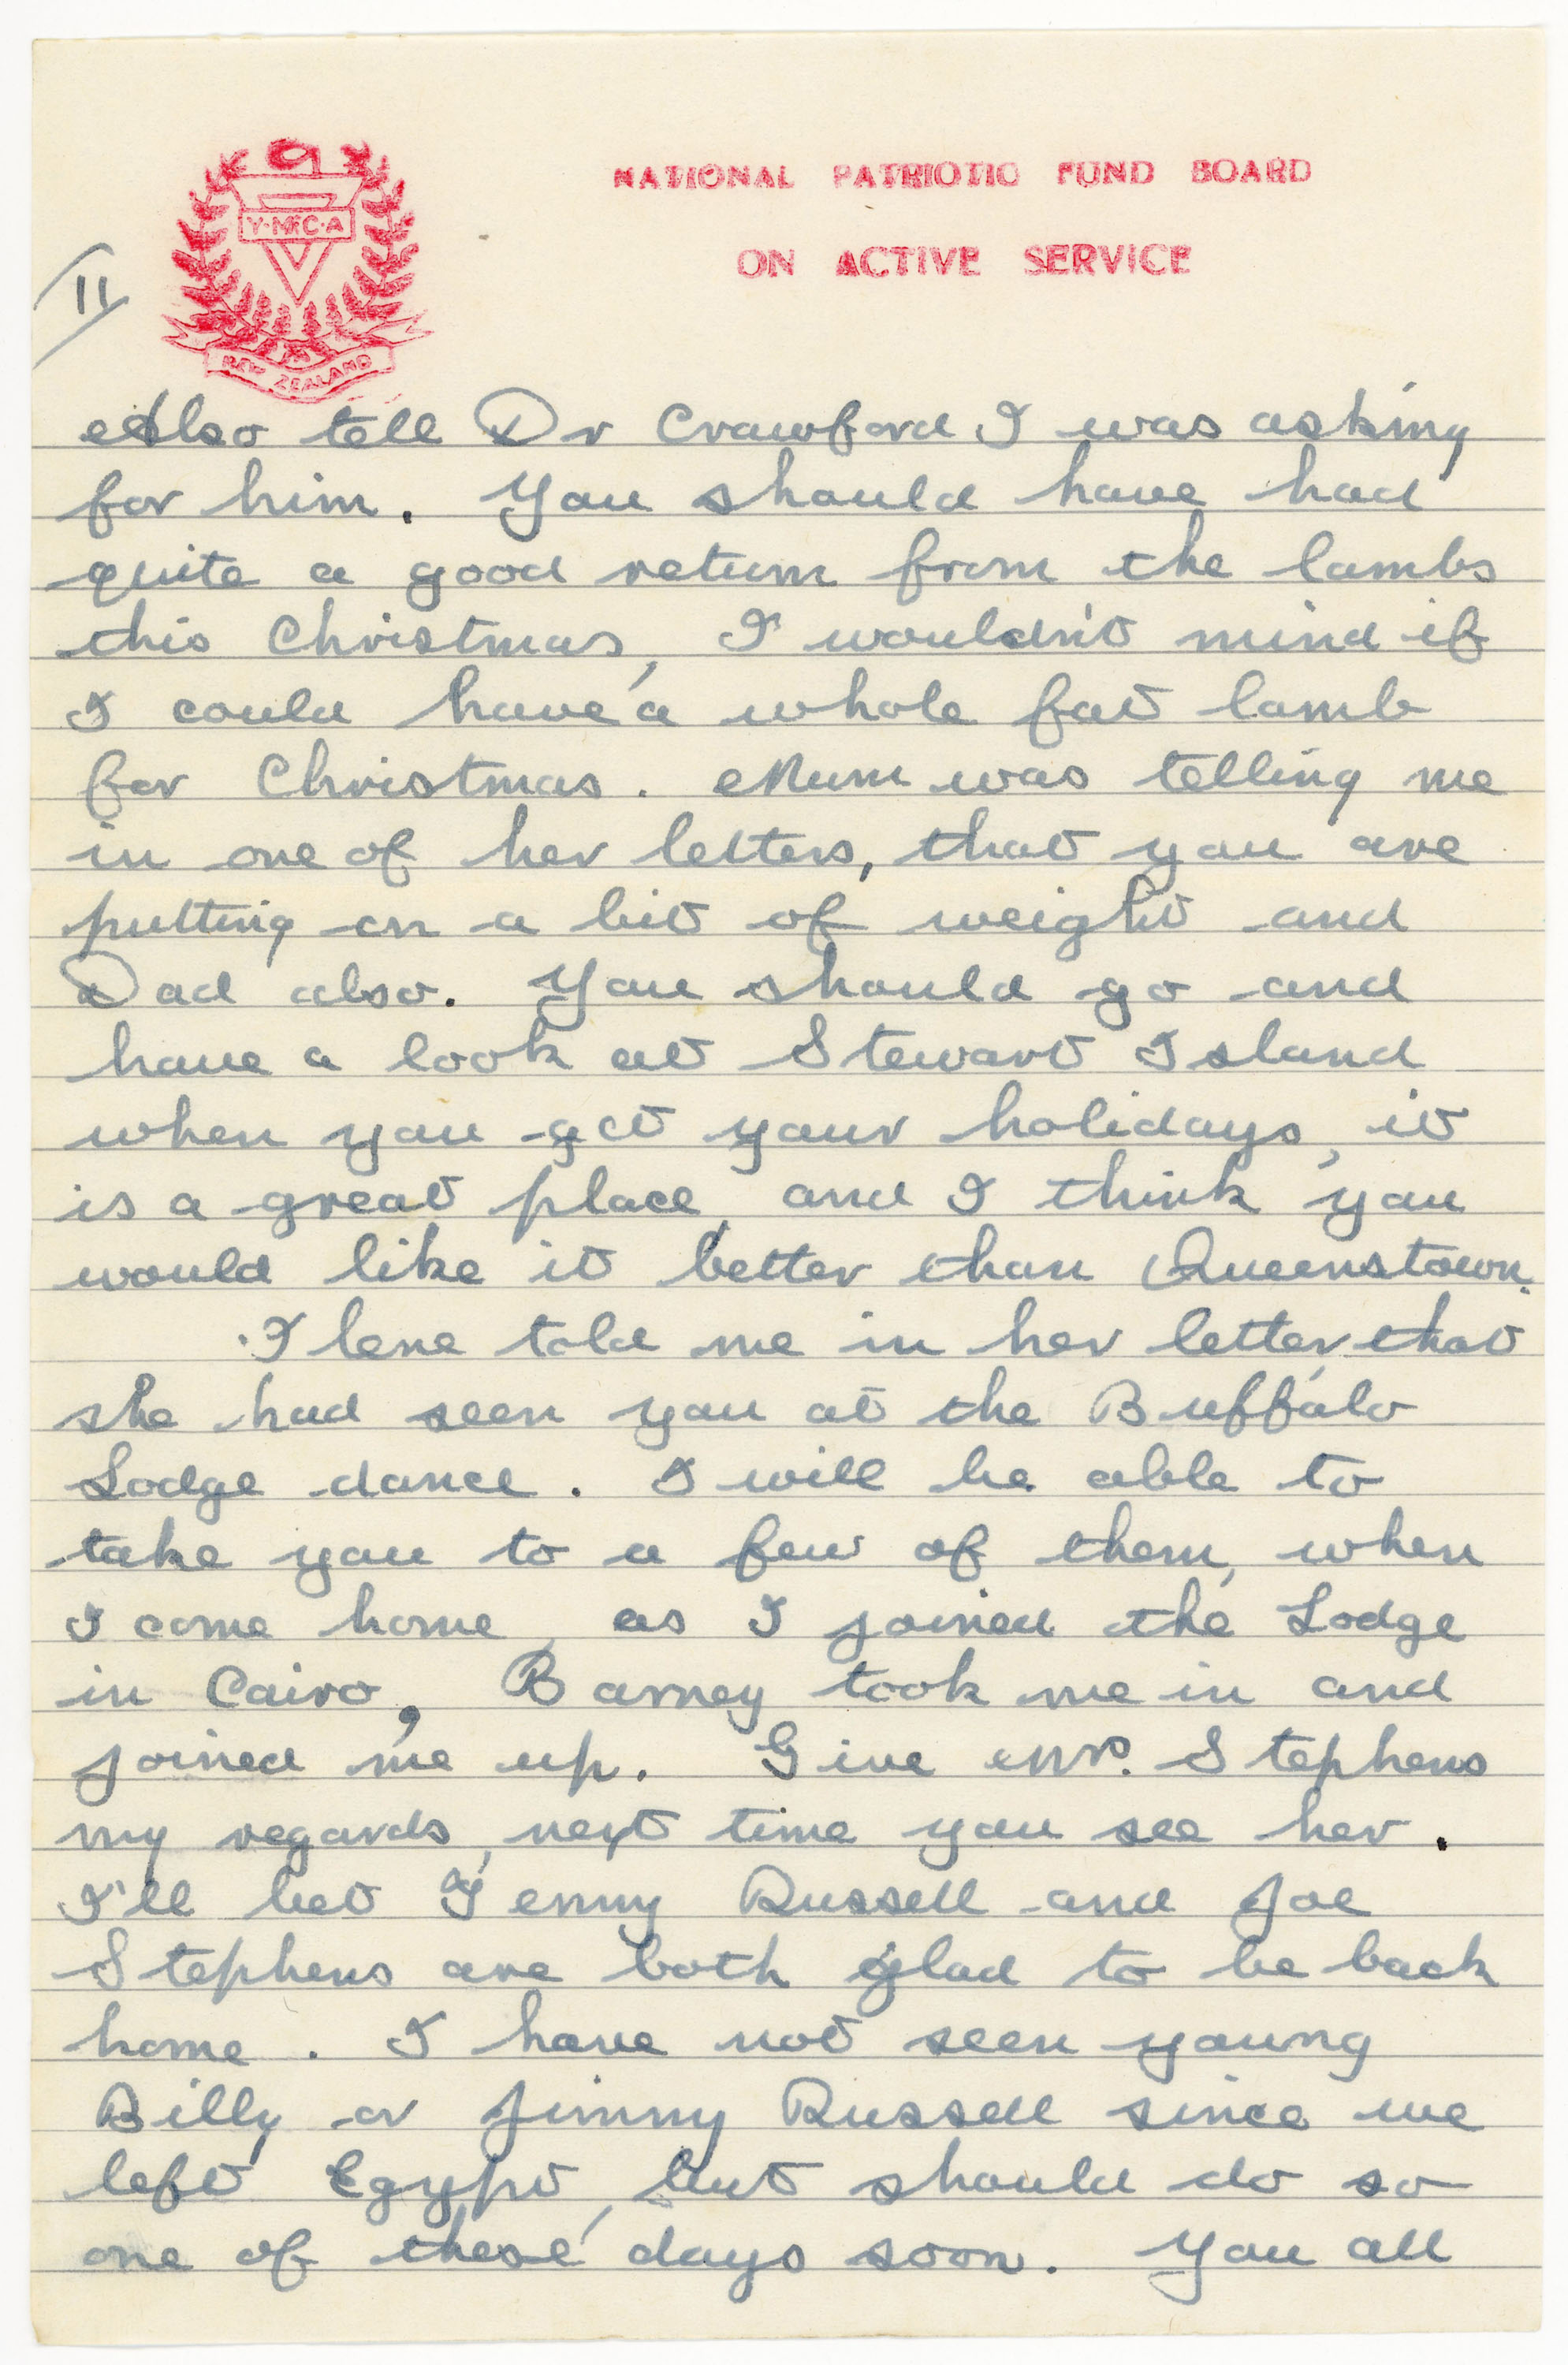 NATIONAL PATRIOTIC FUND BOARD
ON ACTIVE SERVICE
Y·M·C·A
NEW ZEALAND
II
Also tell Dr Crawford I was asking
for him. You should have had
quite a good return from the lambs
this Christmas, I wouldn't mind if
I could have a whole fat lamb
for Christmas. Mum was telling me
in one of her letters, that you are
putting on a bit of weight and
Dad also. You should go and
have a look at Stewart Island
when you get your holidays, it
is a great place, and I think you
would like it better than Queenstown.
Ilene told me in her letter, that
she had seen you at the Buffalo
Lodge dance. I will be able to
take you to a few of them, when
I come home, as I joined the Lodge
in Cairo, Barney took me in and
joined me up. Give Mrs. Stephens
my regards, next time you see her.
I'll bet Tenny Russell and Joe
Stephens are both glad to be back
home. I have not seen young
Billy or Jimmy Russell since we
left Egypt, but should do so
one of these days soon. You all